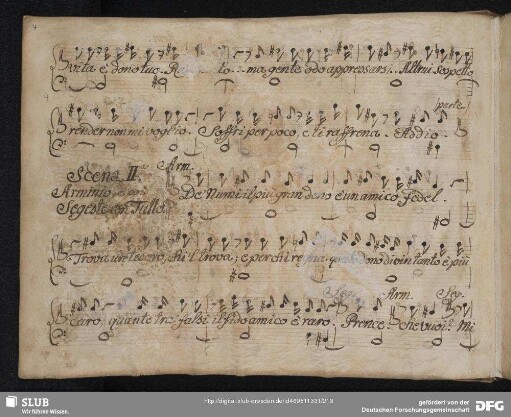 vita è dono tuo. Ra to: ma gente odo appressarsi. Altrui sospetto
(parte)
render non mi voglio. Soffri per poco, e ti raffrena. Addio.
Scena II Arm.
Arminio, e poi De Numi il più gran dono è un amico Fedel.
Segeste con Tullo.
Trova un tesoro, chi'l trova; e perchè sia dono divin tanto è più
Arm. Seg.
caro, quanto tra falsi il fido amico è raro. Prence. che vuoi? Mi
SLUB
Wir führen Wissen.
gefördert von der
Deutschen Forschungsgemeinschaft
DFG